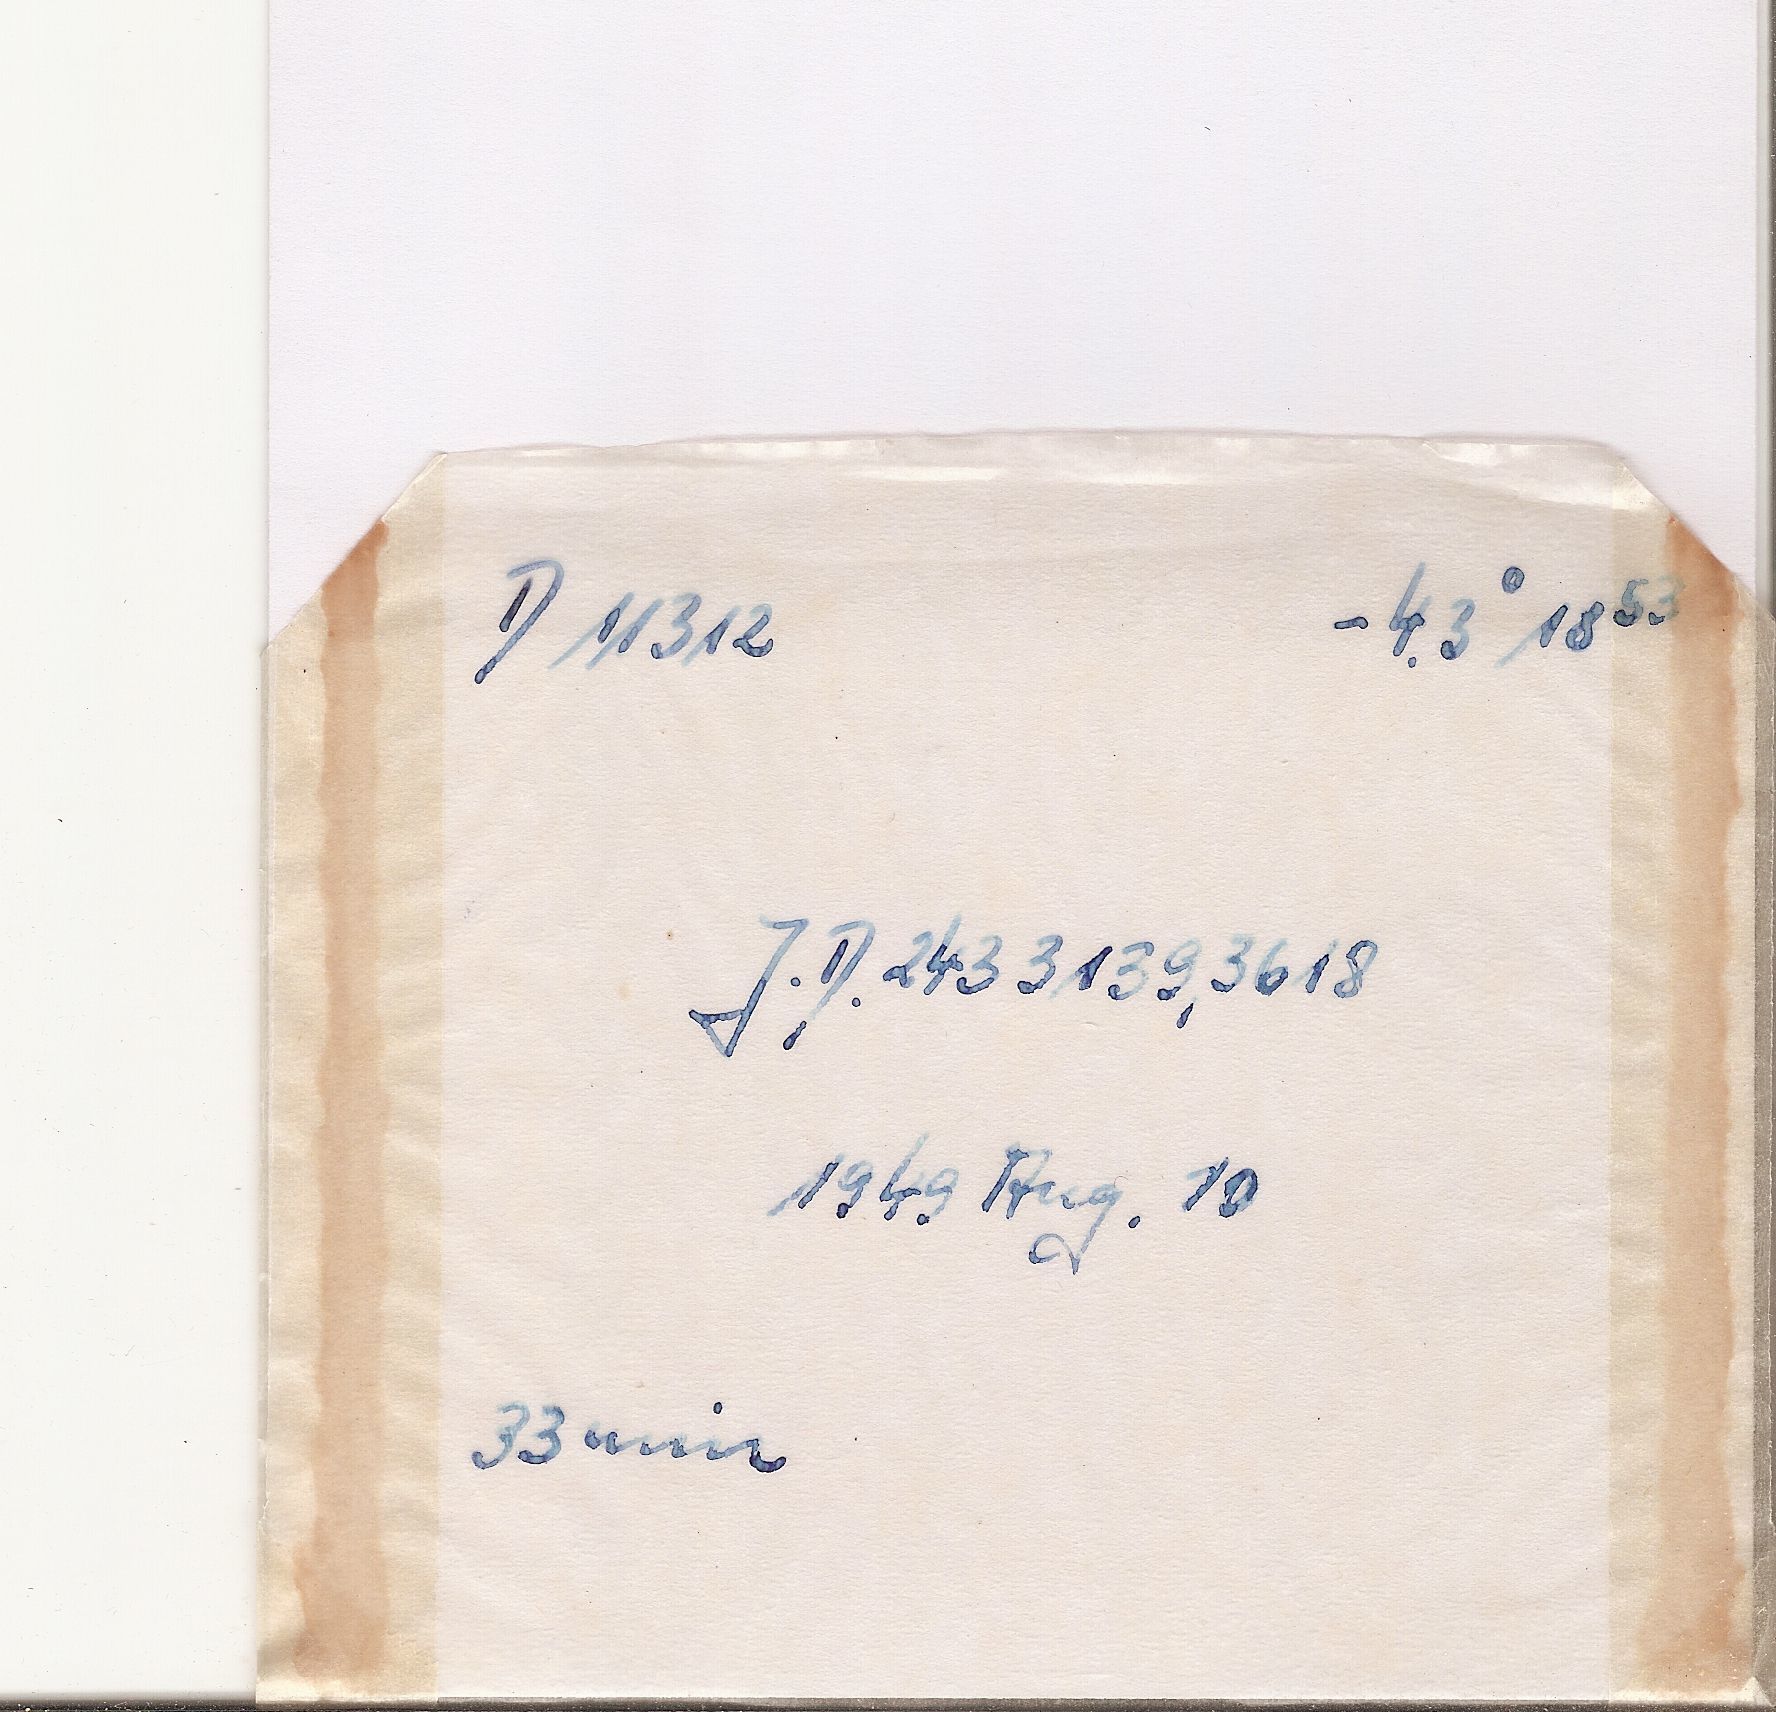 D 11312 -4.3° 18 53
J.D. 2433139,3618
1949 Aug. 10
33 min